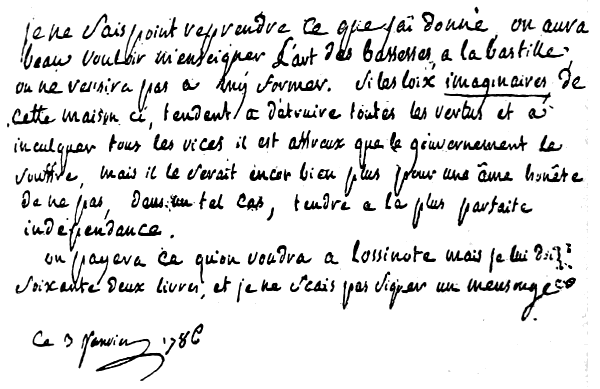 je ne sais point reprendre ce que j'ai donné, on aura
beau vouloir m'enseigner L'art des bassesses, a la bastille,
on ne reussira pas a m'ÿ former. Si les loix imaginaires de
cette maison ci, tendent a détruire toutes les vertus et a
inculquer tous les vices il est affreux que le gouvernement le
souffre, mais il le serait encor bien plus pour une âme honête
de ne pas, dans un tel cas, tendre a la plus parfaite
indépendance.
on payera ce qu'on voudra a Lossinote mais je lui dois
Soixante deux livres, et je ne scais pas signer un mensonge
Ce 3 Janvier 1786